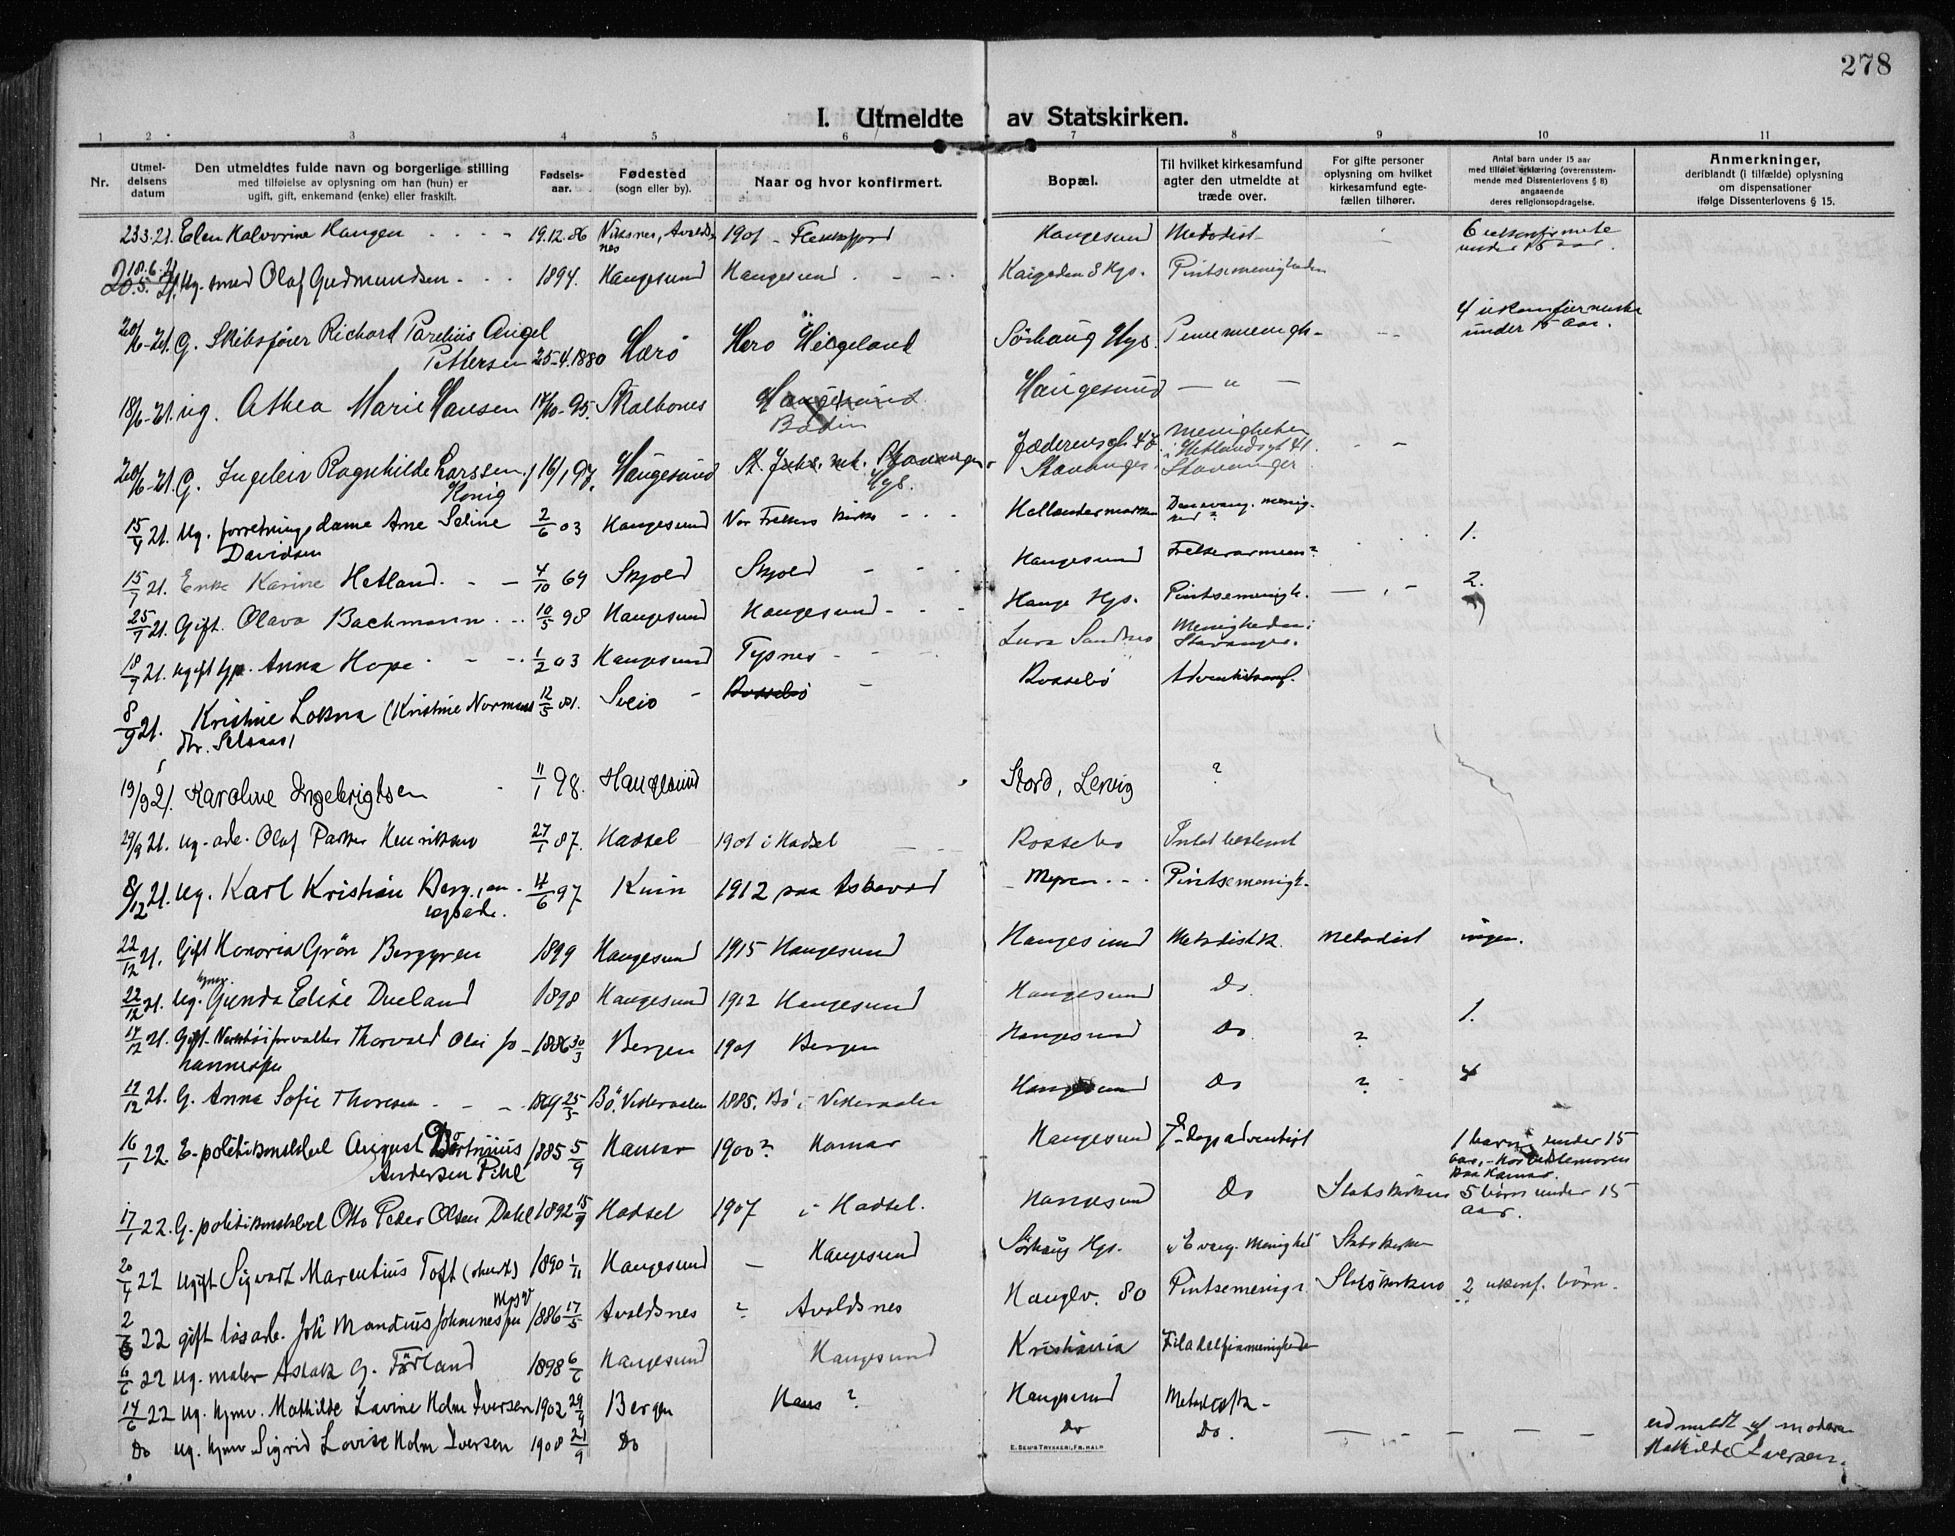 278
I. Utmeldte av Statskirken.
1 2 3 4 5 6 7 8 9 10 11
Nr.
Utmel-
delsens
datum
Den utmeldtes fulde navn og borgerlige stilling
med tilføielse av oplysning om han (hun) er
ugift, gift, enkemand (enke) eller fraskilt.
Fødsels-
aar.
Fødested
(sogn eller by).
Naar og hvor konfirmert.
Bopæl.
Til hvilket kirkesamfund
agter den utmeldte at
træde over.
For gifte personer
oplysning om hvilket
kirkesamfund egte-
fællen tilhører.
Antal barn under 15 aar
med tilføiet erklæring (overensstem-
mende med Dissenterlovens § 8)
angaaende
deres religionsopdragelse.
Anmerkninger,
deriblandt (i tilfælde) oplysning
om dispensationer
ifølge Dissenterlovens § 15.
23.3.21. Elen Halvorine Haugen 19.12.86 Visnes, Avalds-
nes 1901 - Flekkefjord Haugesund Metodist 6 ukonfirmete
under 15 aar.
18.6.21
20.5.21. Ug. smed Olaf Gudmundsen 1894. Haugesund Haugesund Kaigaden 8 Hgs. Pintsemenigheden
20/6-21. G. Skibsfører Richard Parelius Angel
Pettersen 25-4.1880 Herö Herö Helgeland Sörhaug Hgs. Pinsemenigh- 4 ukonfirmerte
under 15 aar.
18/6-21. ug. Athea Marie Hansen 14/10-95. Skalbones Haugesund
Bodin Haugesund - " -
20/6-21. G. Ingeleiv Ragnhilde Larssen, 16/1 97. Haugesund St. Joh. mk. Stavanger
Hgs. Jæderensgt. 47
Stavanger Menigheten
i Hetlandsgt 41.
Stavanger
Honig
15/7 21. Ug. forretningsdame Arne Seline
Davidsen 2/6 03 Haugesund Vor Frelsers kirke Hollendermarken Den evang. menig-
hed? 1.
15/7 21. Enke Karine Hetland 4/10 69 Skjold Skjold Haugesund Frelsesarmeen? 2.
25/7 21. Gift. Olava Bachmann 10/5 98 Haugesund Haugesund Hauge Hgs. Pintsemenigh.
18/7 21. ugift hjp. Anna Hope 1/2 03 Haugesund Tysnes Lura Sandnes Menigheden i
Stavanger.
8/9 21. Kristine Lokna (Kristine Normans
dtr. Selsaas) 12/5 81. Sveio Rossebö Rossebö Adventistsamf.
19/9 21. Karoline Ingebrigtsen 11/1 98. Haugesund Stord, Lervig ?
29/9 21. ug. arb. Olaf Parker Henriksen 27/1 87. Hadsel 1901 i Hadsel Rossebö Intet bestemt
8/12 21. ug. Karl Kristian Berg, an-
lægsarb. 4/6 97 Kinn 1912 paa Askevold Myren Pintsemenigh.
22/12 21. Gift Honoria Grön Berggren 1899 Haugesund 1915 Haugesund Haugesund Metodistk. Metodist ingen.
22/12 21. Ug. hjmv. Gunda Elise Dueland 1898 Haugesund 1912 Haugesund Haugesund Do.
14/12 21. Gift. Verktøiforvalter Thorvald Olai Jo-
hannessen 1886 30/3 Bergen 1901 Bergen Haugesund Do ? 1.
19/12 21. G. Anna Sofie Thoresen 1869 25/5 Bö, Vesteraalen 1885. Bö i Vesteraalen Haugesund Do ? 4
16/1 22. E. politikonstabel August Martinius
Andersen Pihl 1885 5/9 Hamar 1900? Hamar Haugesund 7de Dags adventist 1 barn under 15
aar, - hos bestemoren
paa Hamar.
17/1 22. G. politikonstabel Otto Peder Olsen Dahl 1892 15/9 Hadsel 1907 i Hadsel. Haugesund Do Statskirken 5 börn under 15
aar.
20/1 22 Ugift Sigvart Marentius Toft (skredd) 1890 1/11 Haugesund - Haugesund Sörhaug Hgs. "Evang. Menighet" Statskirken
2/6 22 gift løsarb. Joh Mandius Johannessen 1886 17/5 Avaldsnes ? Avaldsnes Haugev. 80 Pintsemenigh. Statskirken 2 ukonf. börn.
6/6 22 ug. maler Aslak G. Förland 1898 6/6 Haugesund Haugesund Kristiania Filadelfiamenigheden
14/6 22 ug. hjmv. Mathilde Lavine Holm Iversen 1902 29/9 Bergen Haus ? Haugesund Metodistk-
Do ug. hjmv Sigrid Lovise Holm Iversen 1908 21/9 Do Do Do. utmeldt af moderen
Mathilde Iversen.
E. SEM'S TRYKKERI, FR.HALD